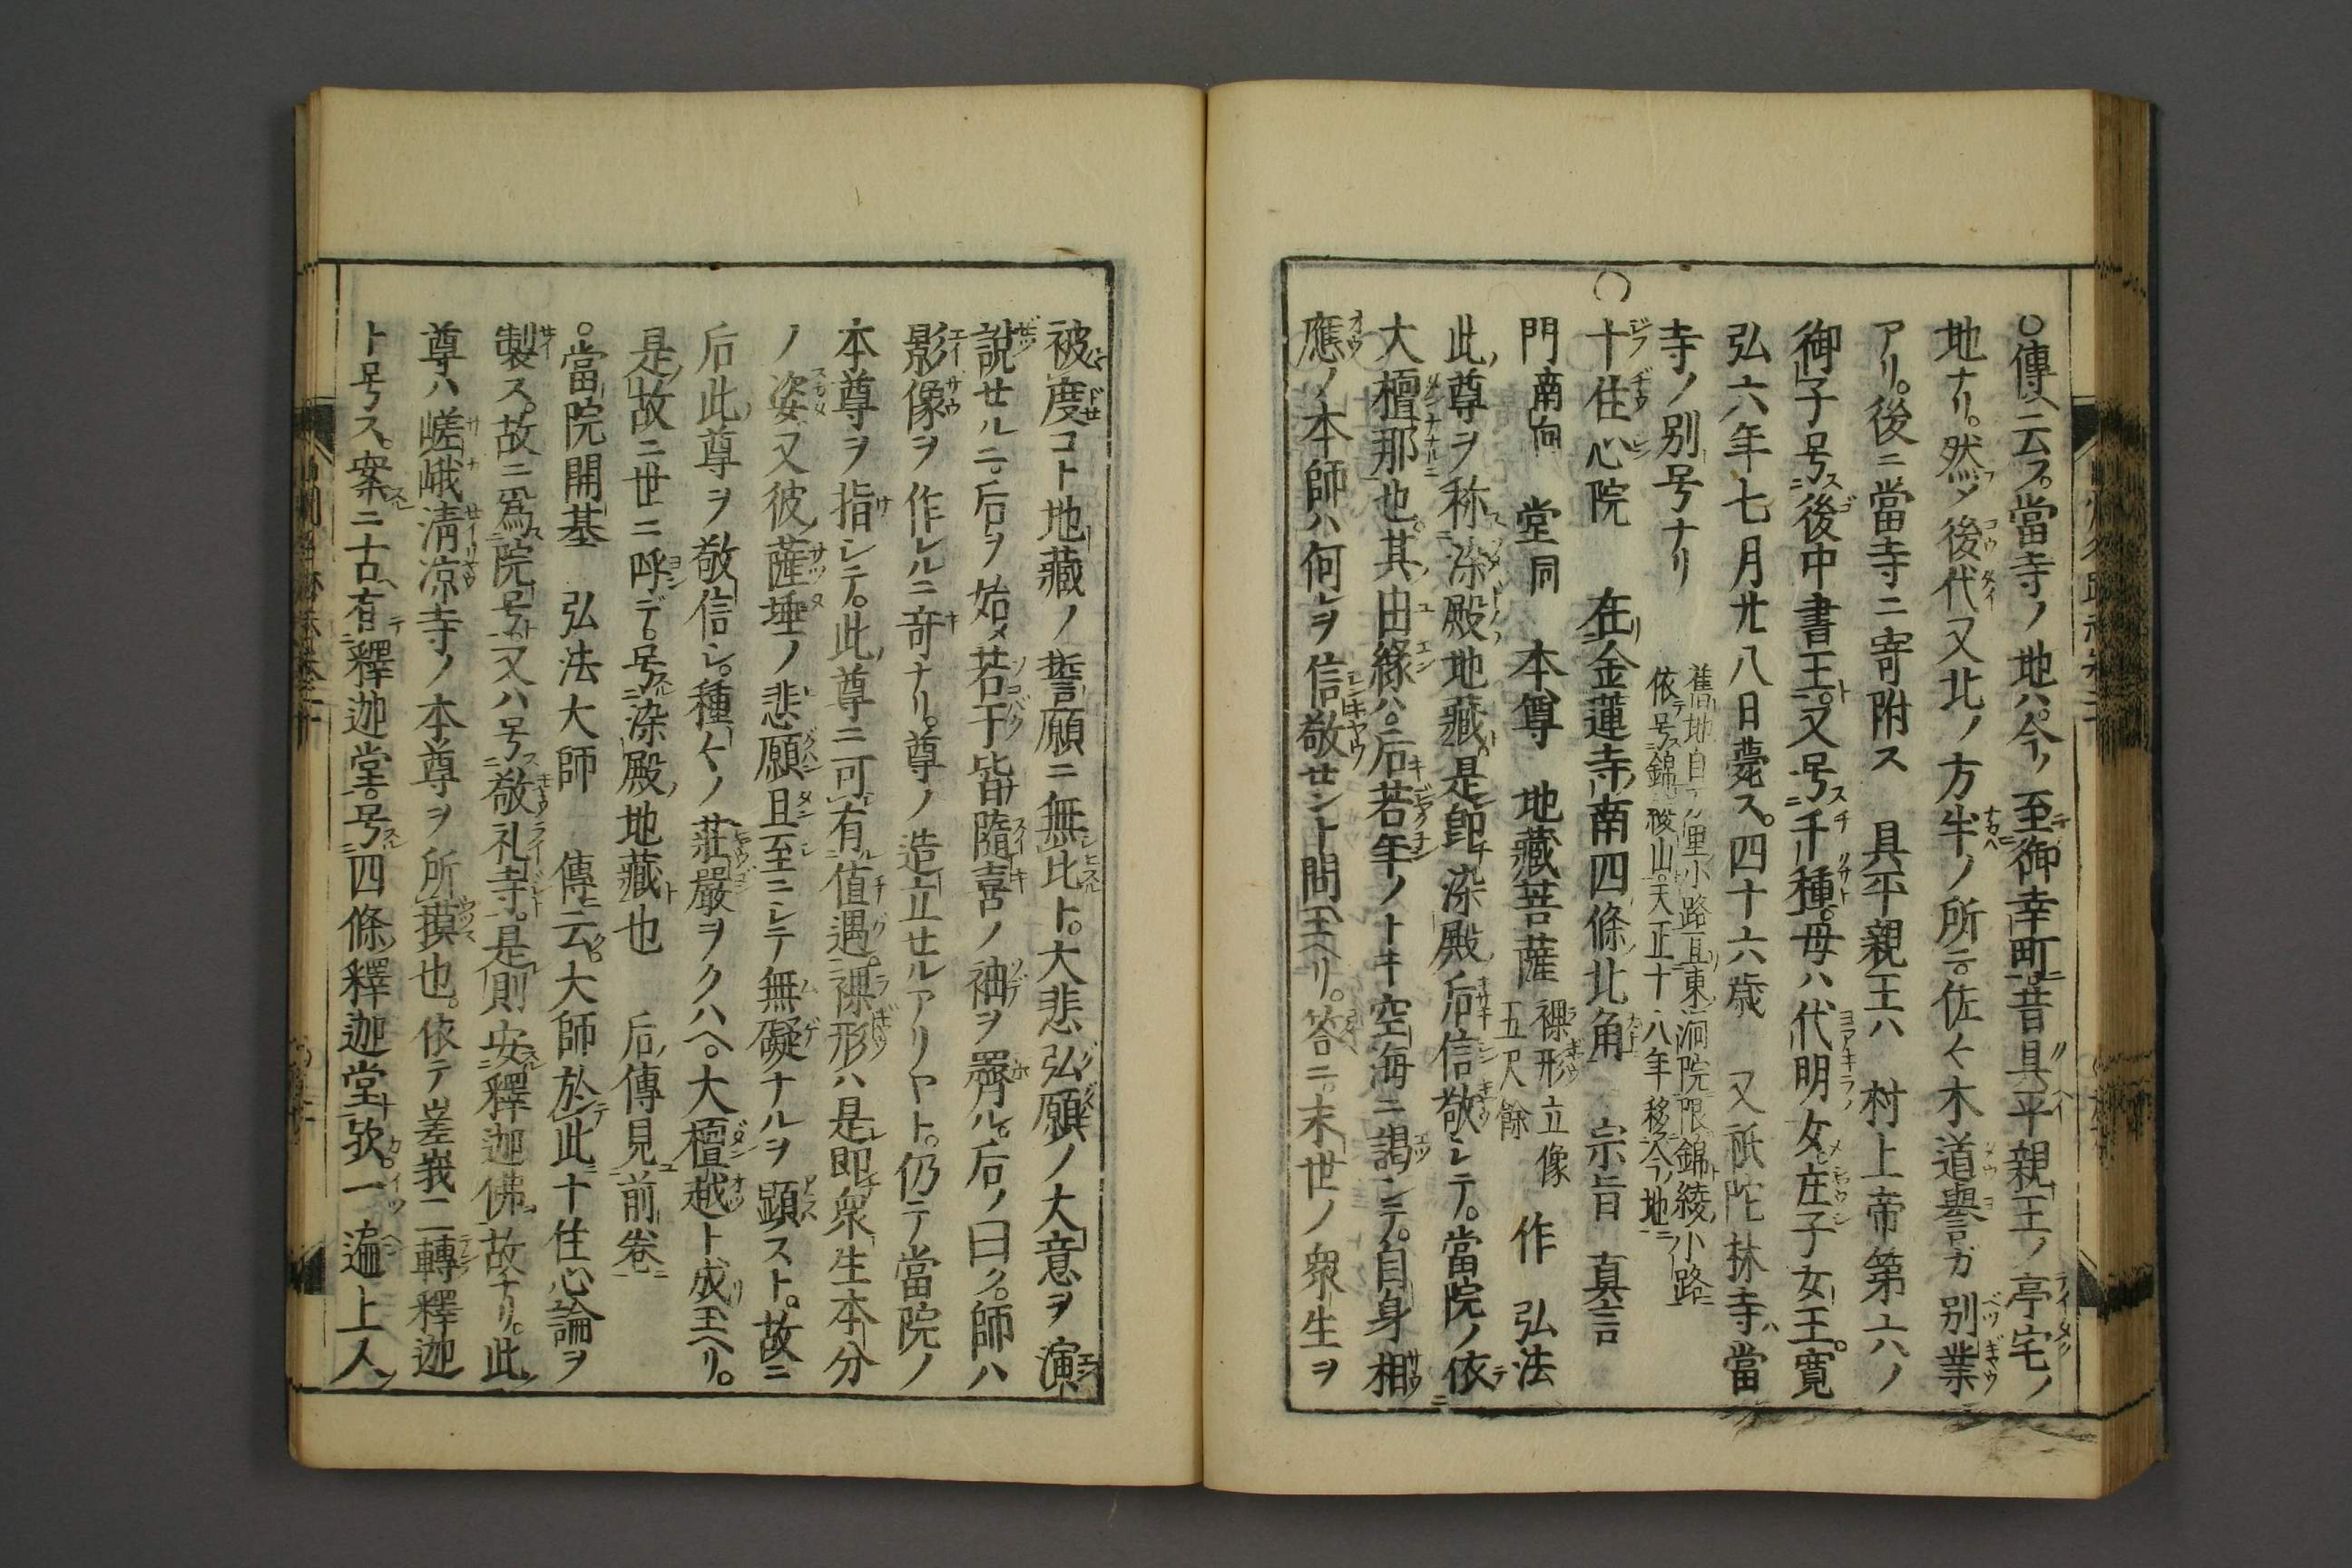 ○傳云フ。當寺ノ地ハ。今ノ至御幸町。昔具平親王ノ亭宅ノ
地ナリ。然メ後代又北ノ方半ノ所ニ。佐々木道譽ガ別業
アリ。後ニ當寺ニ寄附ス 具平親王ハ 村上帝第六ノ
御子号後中書王。又号千種。母ハ代明女庄子女王。寛
弘六年七月廿八日薨ス。四十六歳 又祇陀林寺ハ當
寺ノ別号ナリ
○十住心院 在金蓮寺南四條北角 宗旨 真言
舊地自 小路東洞院限錦綾小路
依号錦 山。天正十八年移今ノ地ニ
門南向 堂同 本尊 地藏菩薩 裸形立像 五尺餘 作 弘法
此尊ヲ称染殿地藏。是卽染殿后信敬シテ。當院ノ依
大檀那也。其由緣ハ。后若年ノトキ空海ニ謁シテ。自身相
應ノ本師ハ何レヲ信敬セント問玉ヘリ。答ニ。末世ノ衆生ヲ
被度コト地藏ノ誓願ニ無比ト。大悲弘願ノ大意ヲ演
說セルニ。后ヲ始メ若干皆隨喜ノ袖ヲ 后ノ曰ク。師ハ
影像ヲ作レルニ竒ナリ。尊ノ造立セルアリヤト。仍テ當院ノ
本尊ヲ指シテ。此尊ニ可有値遇。裸形ハ是即衆生本分
ノ姿又彼薩埵ノ悲願且至ニシテ無礙ナルヲ顕スト。故ニ
后此尊ヲ敬信シ。種々ノ莊嚴ヲクハヘ。大檀越ト成玉ヘリ。
是故ニ世ニ呼デ。号染殿地藏也 后傳見前卷
○當院開基 弘法大師 傳云。大師於此十住心論ヲ
製ス。故ニ爲院号。又ハ号敬礼寺。是則安釋迦佛故ナリ。此
尊ハ嵯峨淸凉寺ノ本尊ヲ所摸也。依テ嵳峩二轉釋迦
ト号ス。案ニ古有釋迦堂。号四條釋迦堂欤。一遍上人